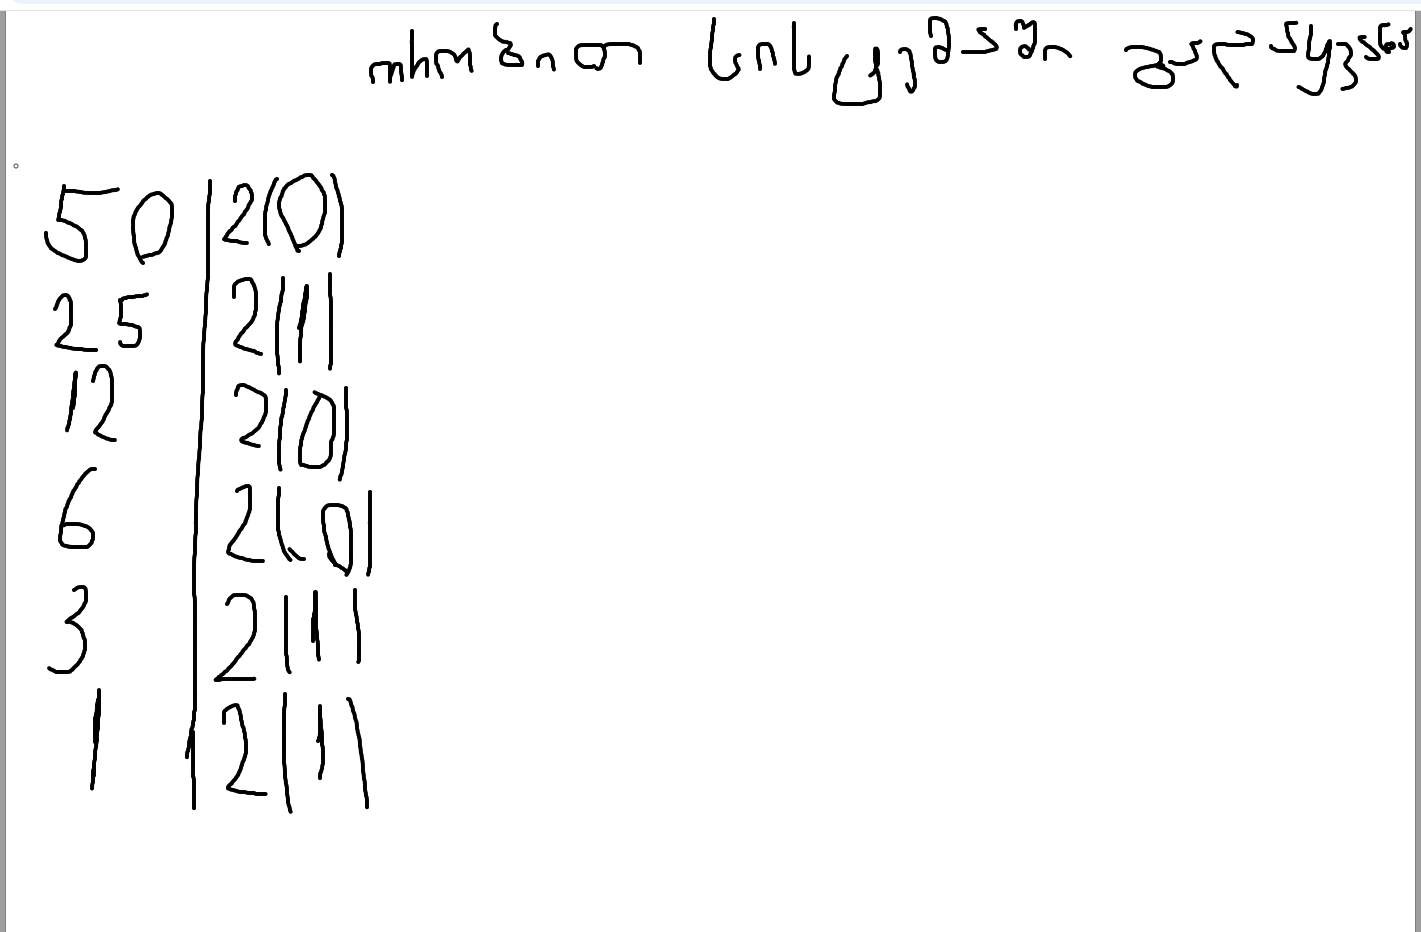 ორობით სისტემაში გადაყვანა
50 | 2(0)
25 | 2(1)
12 | 2(0)
6 | 2(0)
3 | 2(1)
1 | 2(1)